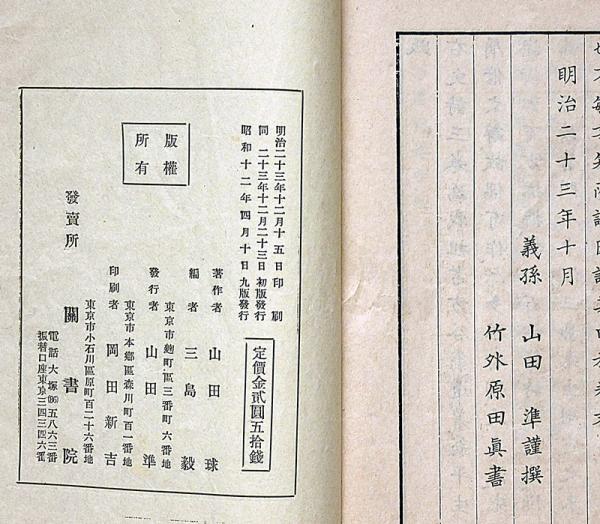 明治二十三年十月
義孫 山田 準謹撰
竹外原田眞書
明治二十三年十二月十五日印刷
同 二十三年十二月二十三日初版發行
昭和十二年四月十日九版發行
版權
所有
定價金貳圓五拾錢
著作者 山田 球
編者 三島 毅
東京市麴町區三番町六番地
發行者 山田 準
東京市本鄕區森川町百一番地
印刷者 岡田新吉
東京市小石川區原町百二十六番地
發賣所 關書院
電話大塚 五八六三番
振替口座東京三四三四六番